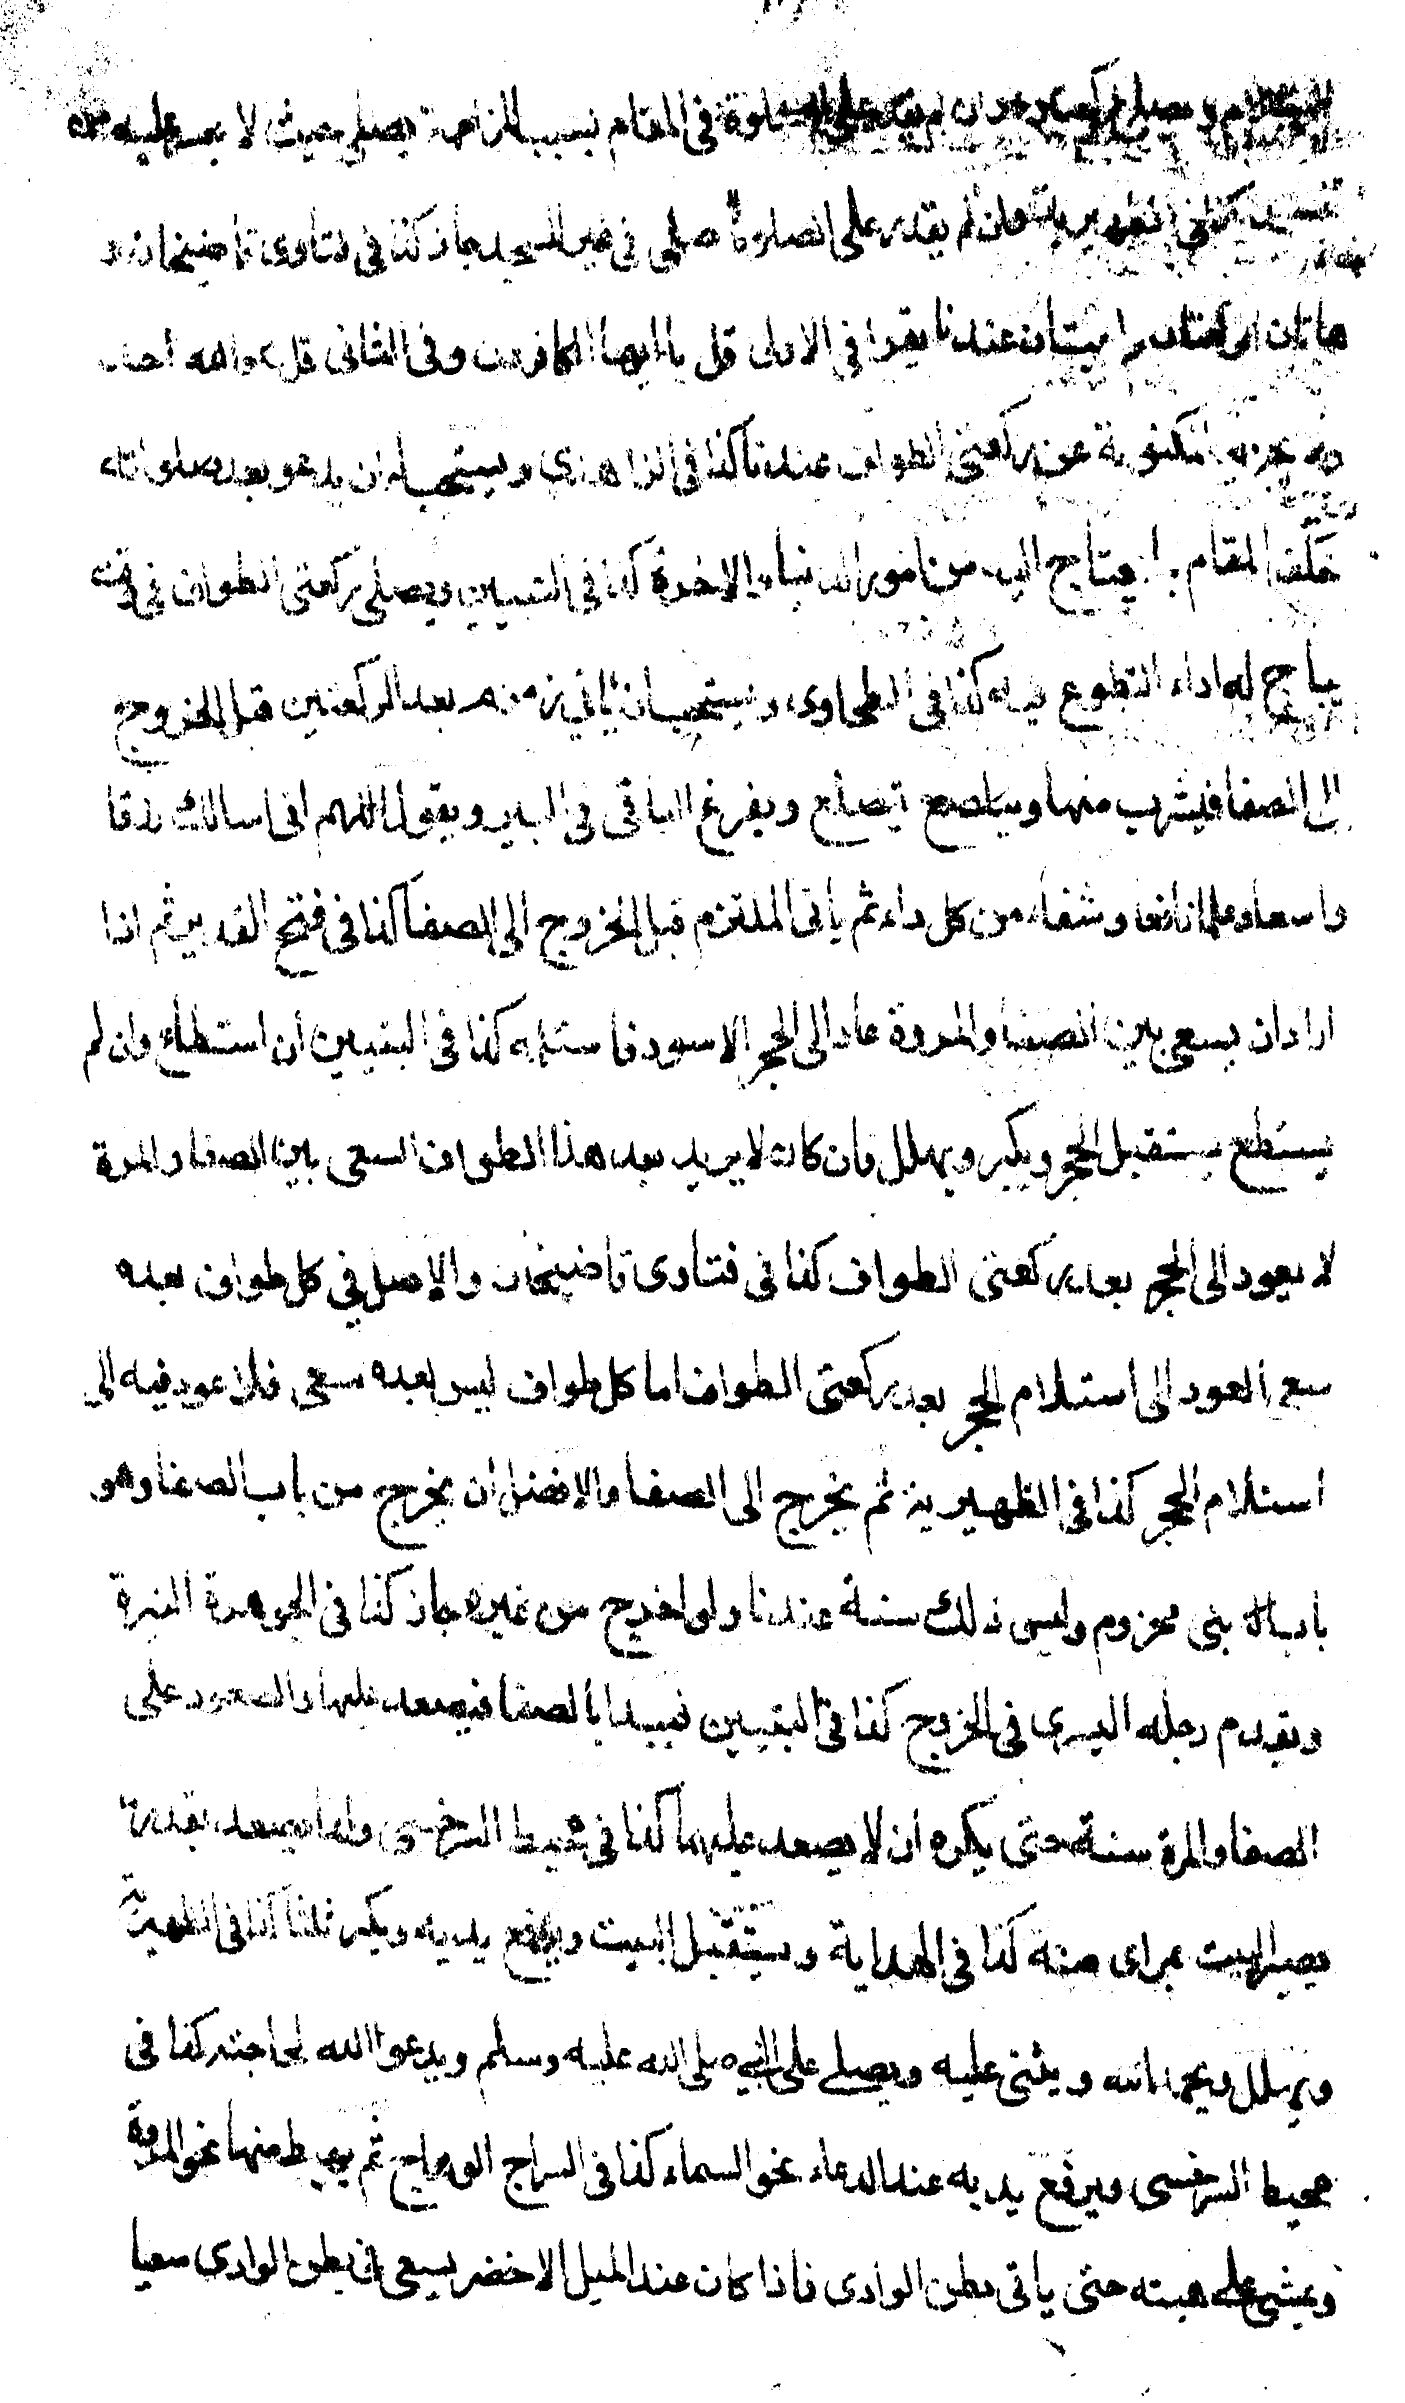 في المقام بسبب المزاحمة يصلي حيث لا يعسر عليه
وان لم يقدر على الصلوة صلى في غير المسجد جاز كذا في فتاوى قاضيخان و
هاتان الركعتان واجبتان عندنا يقرا في الاولى قل يا ايها الكافرون وفي الثانى قل هو الله احد
المكتوبة عن ركعتى الطواف عندنا كذا في الزاهدي ويستحب ان يدعو بعد صلواته
خلف المقام بما يحتاج اليه من امور الدنيا والاخرة كذا في التبيين ويصلى ركعتى الطواف في وقت
يباح له اداء التطوع فيه كذا في الطحاوى ويستحب ان ياتي زمزم بعد الركعتين قبل الخروج
الى الصفا فيشرب منها ويتضلع ويفرغ الباقى فى البير ويقول اللهم انى اسالك رزقا
واسعا وعلما نافعا وشفاء من كل داء ثم ياتى الملتزم قبل الخروج الى الصفا كذا فى فتح القدير ثم اذا
ارادان يسعى بين الصفا والمروة عاد الى الحجر الاسود فاستلمه كذا في التبيين ان استطاع وان لم
يستطع يستقبل الحجر ويكبر ويهلل فان كان لا يريد بعد هذا الطواف السعى بين الصفا والمرة
لا يعود الى الحجر بعد ركعتى الطواف كذا فى فتاوى قاضيخان والاصل في كل طواف بعده
سعى العود الى استلام الحجر بعد ركعتى الطواف اما كل طواف ليس بعده سعى فلا عود فيه الى
استلام الحجر كذا في الظهيرية ثم يخرج الى الصفا والافضل ان يخرج من باب الصفا وهو
باب بنى مخزوم وليس ذلك سنة عندنا ولو خرج من غيره جاز كذا فى الجوهرة النيرة
ويقدم رجله اليسرى فى الخروج كذا فى التبيين فيبدا بالصفا فيصعد عليها والصعود على
الصفا والمرة سنة حتى يكره ان لا يصعد عليهما كذا في محيط السرخسى وانما يصعد بقدر ما
يصير البيت بمراى منه كذا في الهداية ويستقبل البيت ويرفع يديه ويكبر ثلثا كذا في الظهيرية
ويهلل ويحمد الله ويثنى عليه ويصلي على النبي صلى الله عليه وسلم ويدعو الله لحاجته كذا فى
محيط السرخسى ويرفع يديه عند الدعاء نحو السماء كذا فى السراج الوهاج ثم يهبط منها نحو المروة
ويمشى على هيبته حتى ياتى بطن الوادى فاذا كان عند الميل الاخضر يسعى فى بطن الوادى سعيا